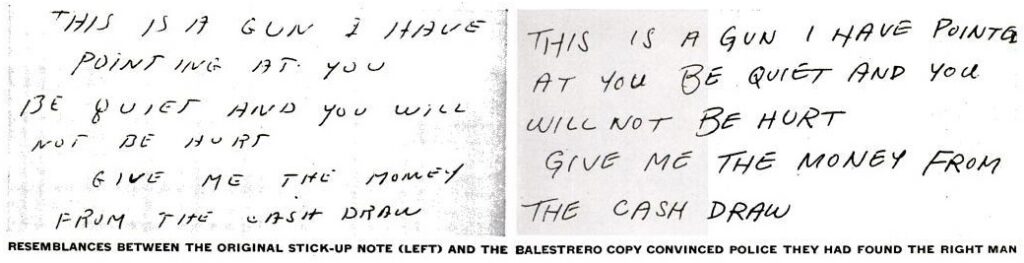 THIS IS A GUN I HAVE
POINTING AT YOU
BE QUIET AND YOU WILL
NOT BE HURT
GIVE ME THE MONEY
FROM THE CASH DRAW
THIS IS A GUN I HAVE POINTG
AT YOU BE QUIET AND YOU
WILL NOT BE HURT
GIVE ME THE MONEY FROM
THE CASH DRAW
RESEMBLANCES BETWEEN THE ORIGINAL STICK-UP NOTE (LEFT) AND THE BALESTRERO COPY CONVINCED POLICE THEY HAD FOUND THE RIGHT MAN